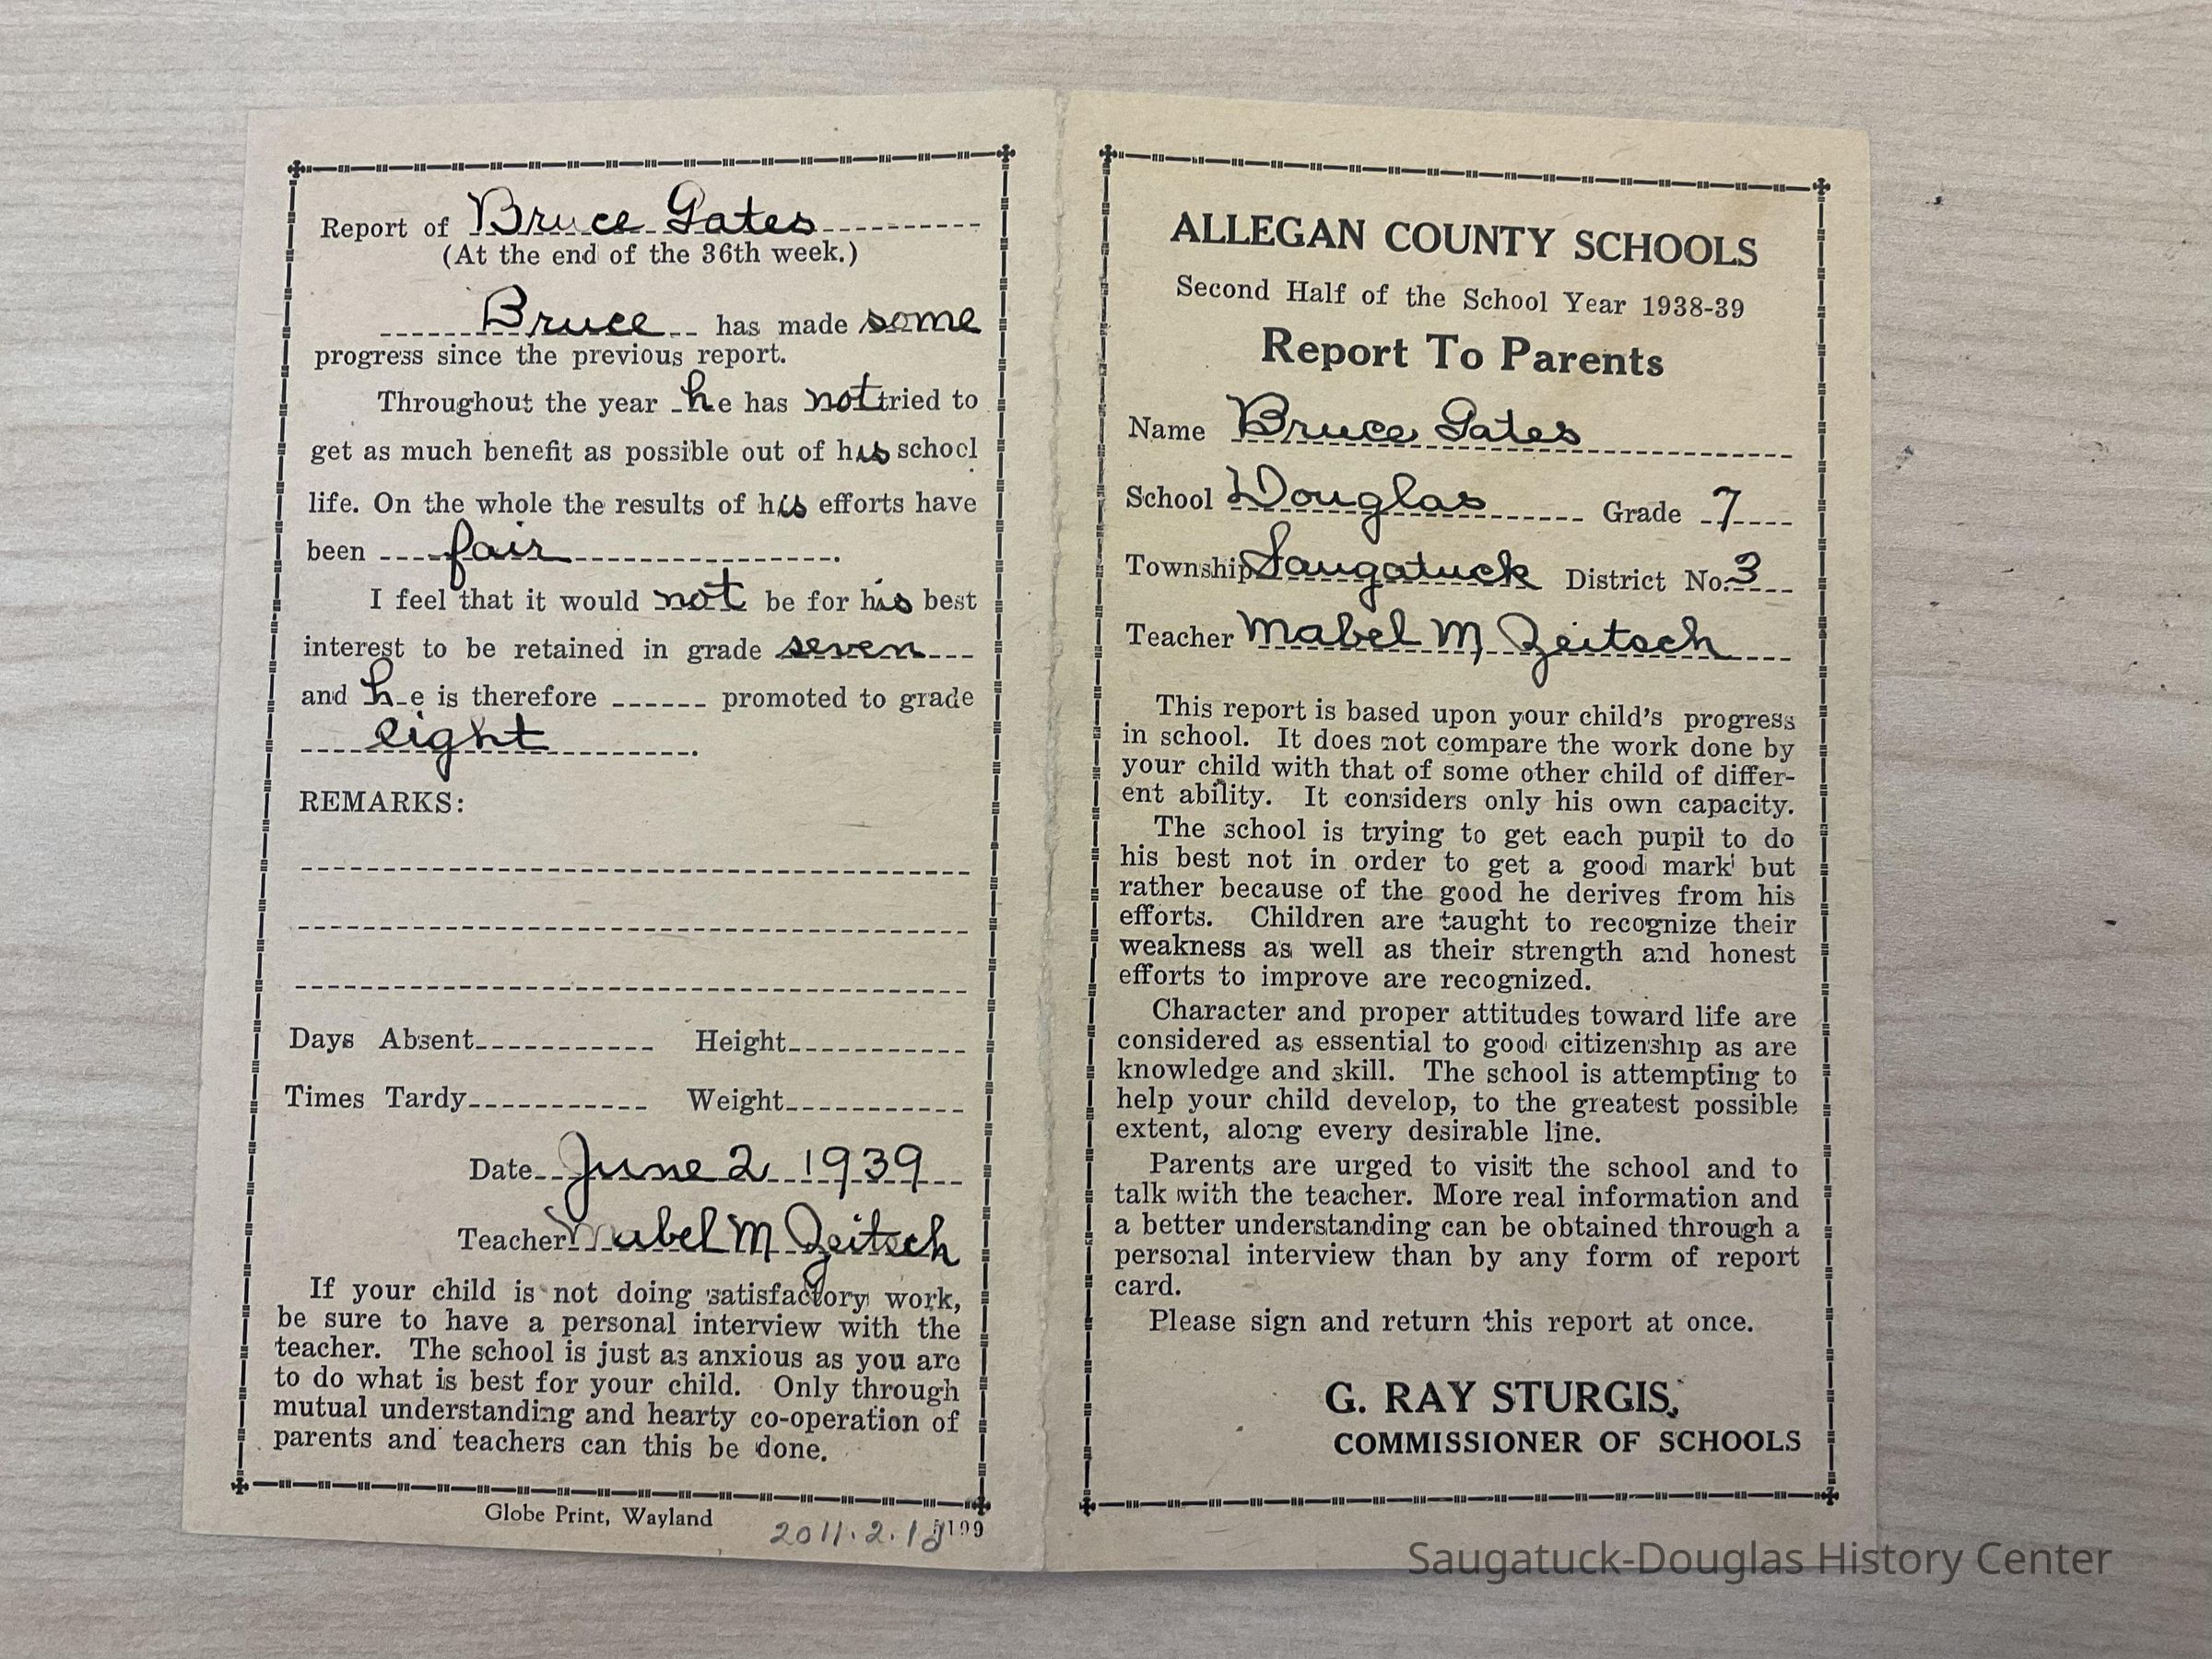 Report of Bruce Gates
(At the end of the 36th week.)
Bruce has made some
progress since the previous report.
Throughout the year he has not tried to
get as much benefit as possible out of his school
life. On the whole the results of his efforts have
been fair.
I feel that it would not be for his best
interest to be retained in grade seven
and he is therefore ------ promoted to grade
eight.
REMARKS:
Days Absent Height
Times Tardy Weight
Date June 2 1939
Teacher Mabel M Zeitsch
If your child is not doing satisfactory work,
be sure to have a personal interview with the
teacher. The school is just as anxious as you are
to do what is best for your child. Only through
mutual understanding and hearty co-operation of
parents and teachers can this be done.
Globe Print, Wayland
2011.2.1
ALLEGAN COUNTY SCHOOLS
Second Half of the School Year 1938-39
Report To Parents
Name Bruce Gates
School Douglas Grade 7
Township Saugatuck District No. 3
Teacher Mabel M Zeitsch
This report is based upon your child's progress
in school. It does not compare the work done by
your child with that of some other child of differ-
ent ability. It considers only his own capacity.
The school is trying to get each pupil to do
his best not in order to get a good mark but
rather because of the good he derives from his
efforts. Children are taught to recognize their
weakness as well as their strength and honest
efforts to improve are recognized.
Character and proper attitudes toward life are
considered as essential to good citizenship as are
knowledge and skill. The school is attempting to
help your child develop, to the greatest possible
extent, along every desirable line.
Parents are urged to visit the school and to
talk with the teacher. More real information and
a better understanding can be obtained through a
personal interview than by any form of report
card.
Please sign and return this report at once.
G. RAY STURGIS,
COMMISSIONER OF SCHOOLS
Saugatuck-Douglas History Center